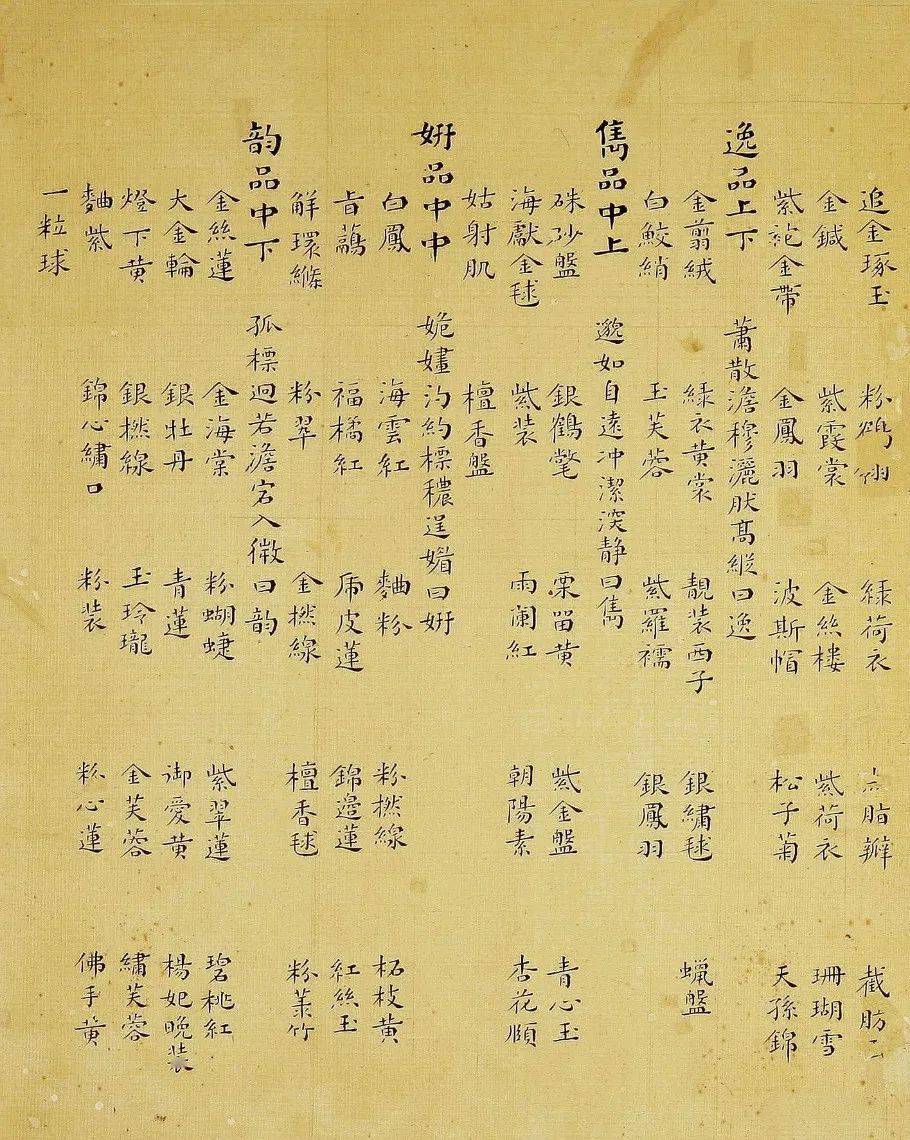 追金琢玉 粉鶴翎 綠荷衣 脂瓣 截肪
金鍼 紫霞裳 金絲樓 紫荷衣 珊瑚雪
紫袍金帶 金鳳羽 波斯帽 松子菊 天孫錦
逸品上下 蕭散澹穆灑肰高縱曰逸
金剪絨 綠衣黃裳 靚装西子 銀繡毬 蠟盤
白鮫綃 玉芙蓉 紫羅襦 銀鳳羽
雋品中上 邈如自遠冲潔深靜曰雋
硃砂盤 銀鶴氅 栗留黃 紫金盤 青心玉
海獻金毬 紫装 雨闌紅 朝陽素 杏花顋
姑射肌 檀香盤
妍品中中 姽嫿汋約標穠逞媚曰妍
白鳳 海雲紅 麯粉 粉撚線 柘枝黃
福橘紅 虎皮蓮 錦邊蓮 紅絲玉
解環絛 粉翠 金撚線 檀香毬 粉菉竹
韵品中下 孤標迥若澹宕入微曰韵
金絲蓮 金海棠 粉蝴蜨 紫翠蓮 碧桃紅
大金輪 銀牡丹 青蓮 御愛黃 楊妃晚装
燈下黃 銀撚線 玉玲瓏 金芙蓉 繡芙蓉
麯紫 錦心繡口 粉装 粉心蓮 佛手黃
一粒球